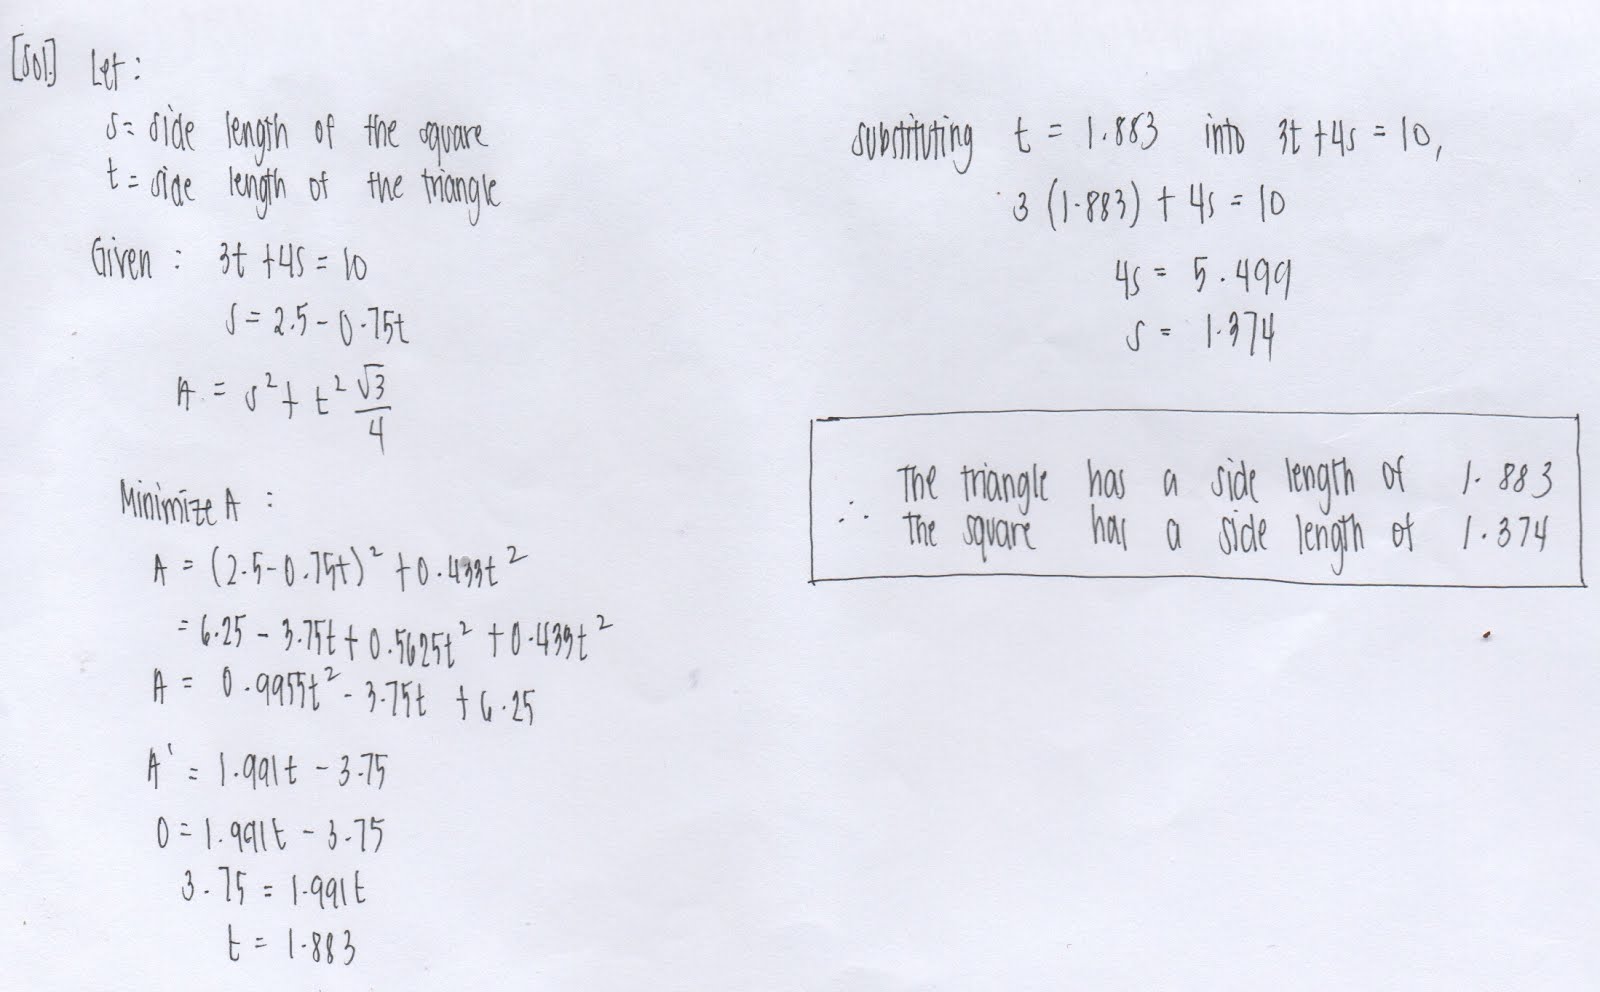 [Sol.] Let:
s = side length of the square
t = side length of the triangle
Given : 3t + 4s = 10
s = 2.5 - 0.75t
A = s² + t² √3/4
Minimize A :
A = (2.5-0.75t)² + 0.433t²
= 6.25 - 3.75t + 0.5625t² + 0.433t²
A = 0.9955t² - 3.75t + 6.25
A' = 1.991t - 3.75
0 = 1.991t - 3.75
3.75 = 1.991t
t = 1.883
substituting t = 1.883 into 3t + 4s = 10,
3 (1.883) + 4s = 10
4s = 5.499
s = 1.374
∴ The triangle has a side length of 1.883
The square has a side length of 1.374